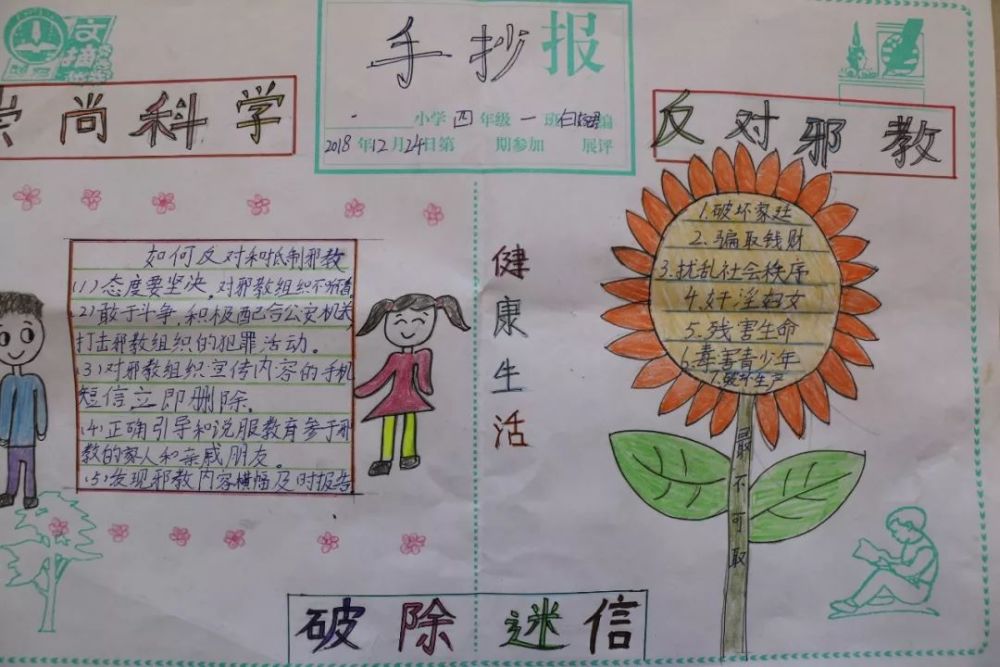 文摘
手抄报
小学四年级一班 编
2018年12月24日第 期参加 展评
崇尚科学
反对邪教
如何反对和抵制邪教
(1)态度要坚决,对邪教组织不听信
(2)敢于斗争,积极配合公安机关
打击邪教组织的犯罪活动。
(3)对邪教组织宣传内容的手机
短信立即删除。
(4)正确引导和说服教育参于邪
教的家人和亲戚朋友。
(5)发现邪教内容横幅及时报告
健康生活
1.破坏家廷
2.骗取钱财
3.扰乱社会秩序
4.奸淫妇女
5.残害生命
6.毒害青少年
7.破坏生产
最不可取
破除迷信